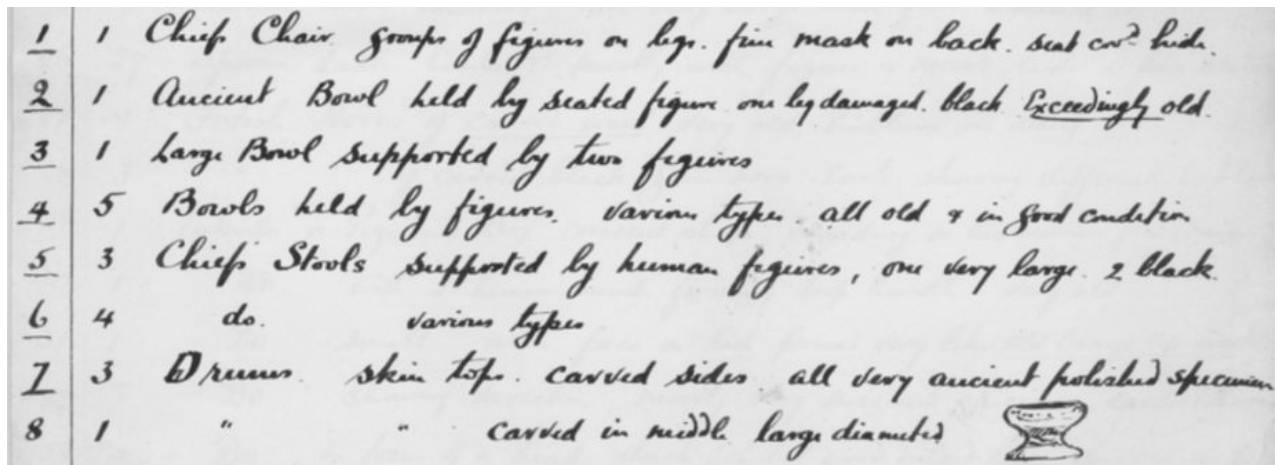 1 1 Chiefs Chair. groups of figures on legs. fine mask on back. seat cov^d hide.
2 1 Ancient Bowl held by seated figure one leg damaged. black Exceedingly old.
3 1 Large Bowl supported by two figures
4 5 Bowls held by figures. various types. all old & in good condition
5 3 Chiefs Stools supported by human figures, one very large. 2 black.
6 4 do. various types
7 3 Drums. skin tops. carved sides all very ancient polished specimen
8 1 " " carved in middle large diameter